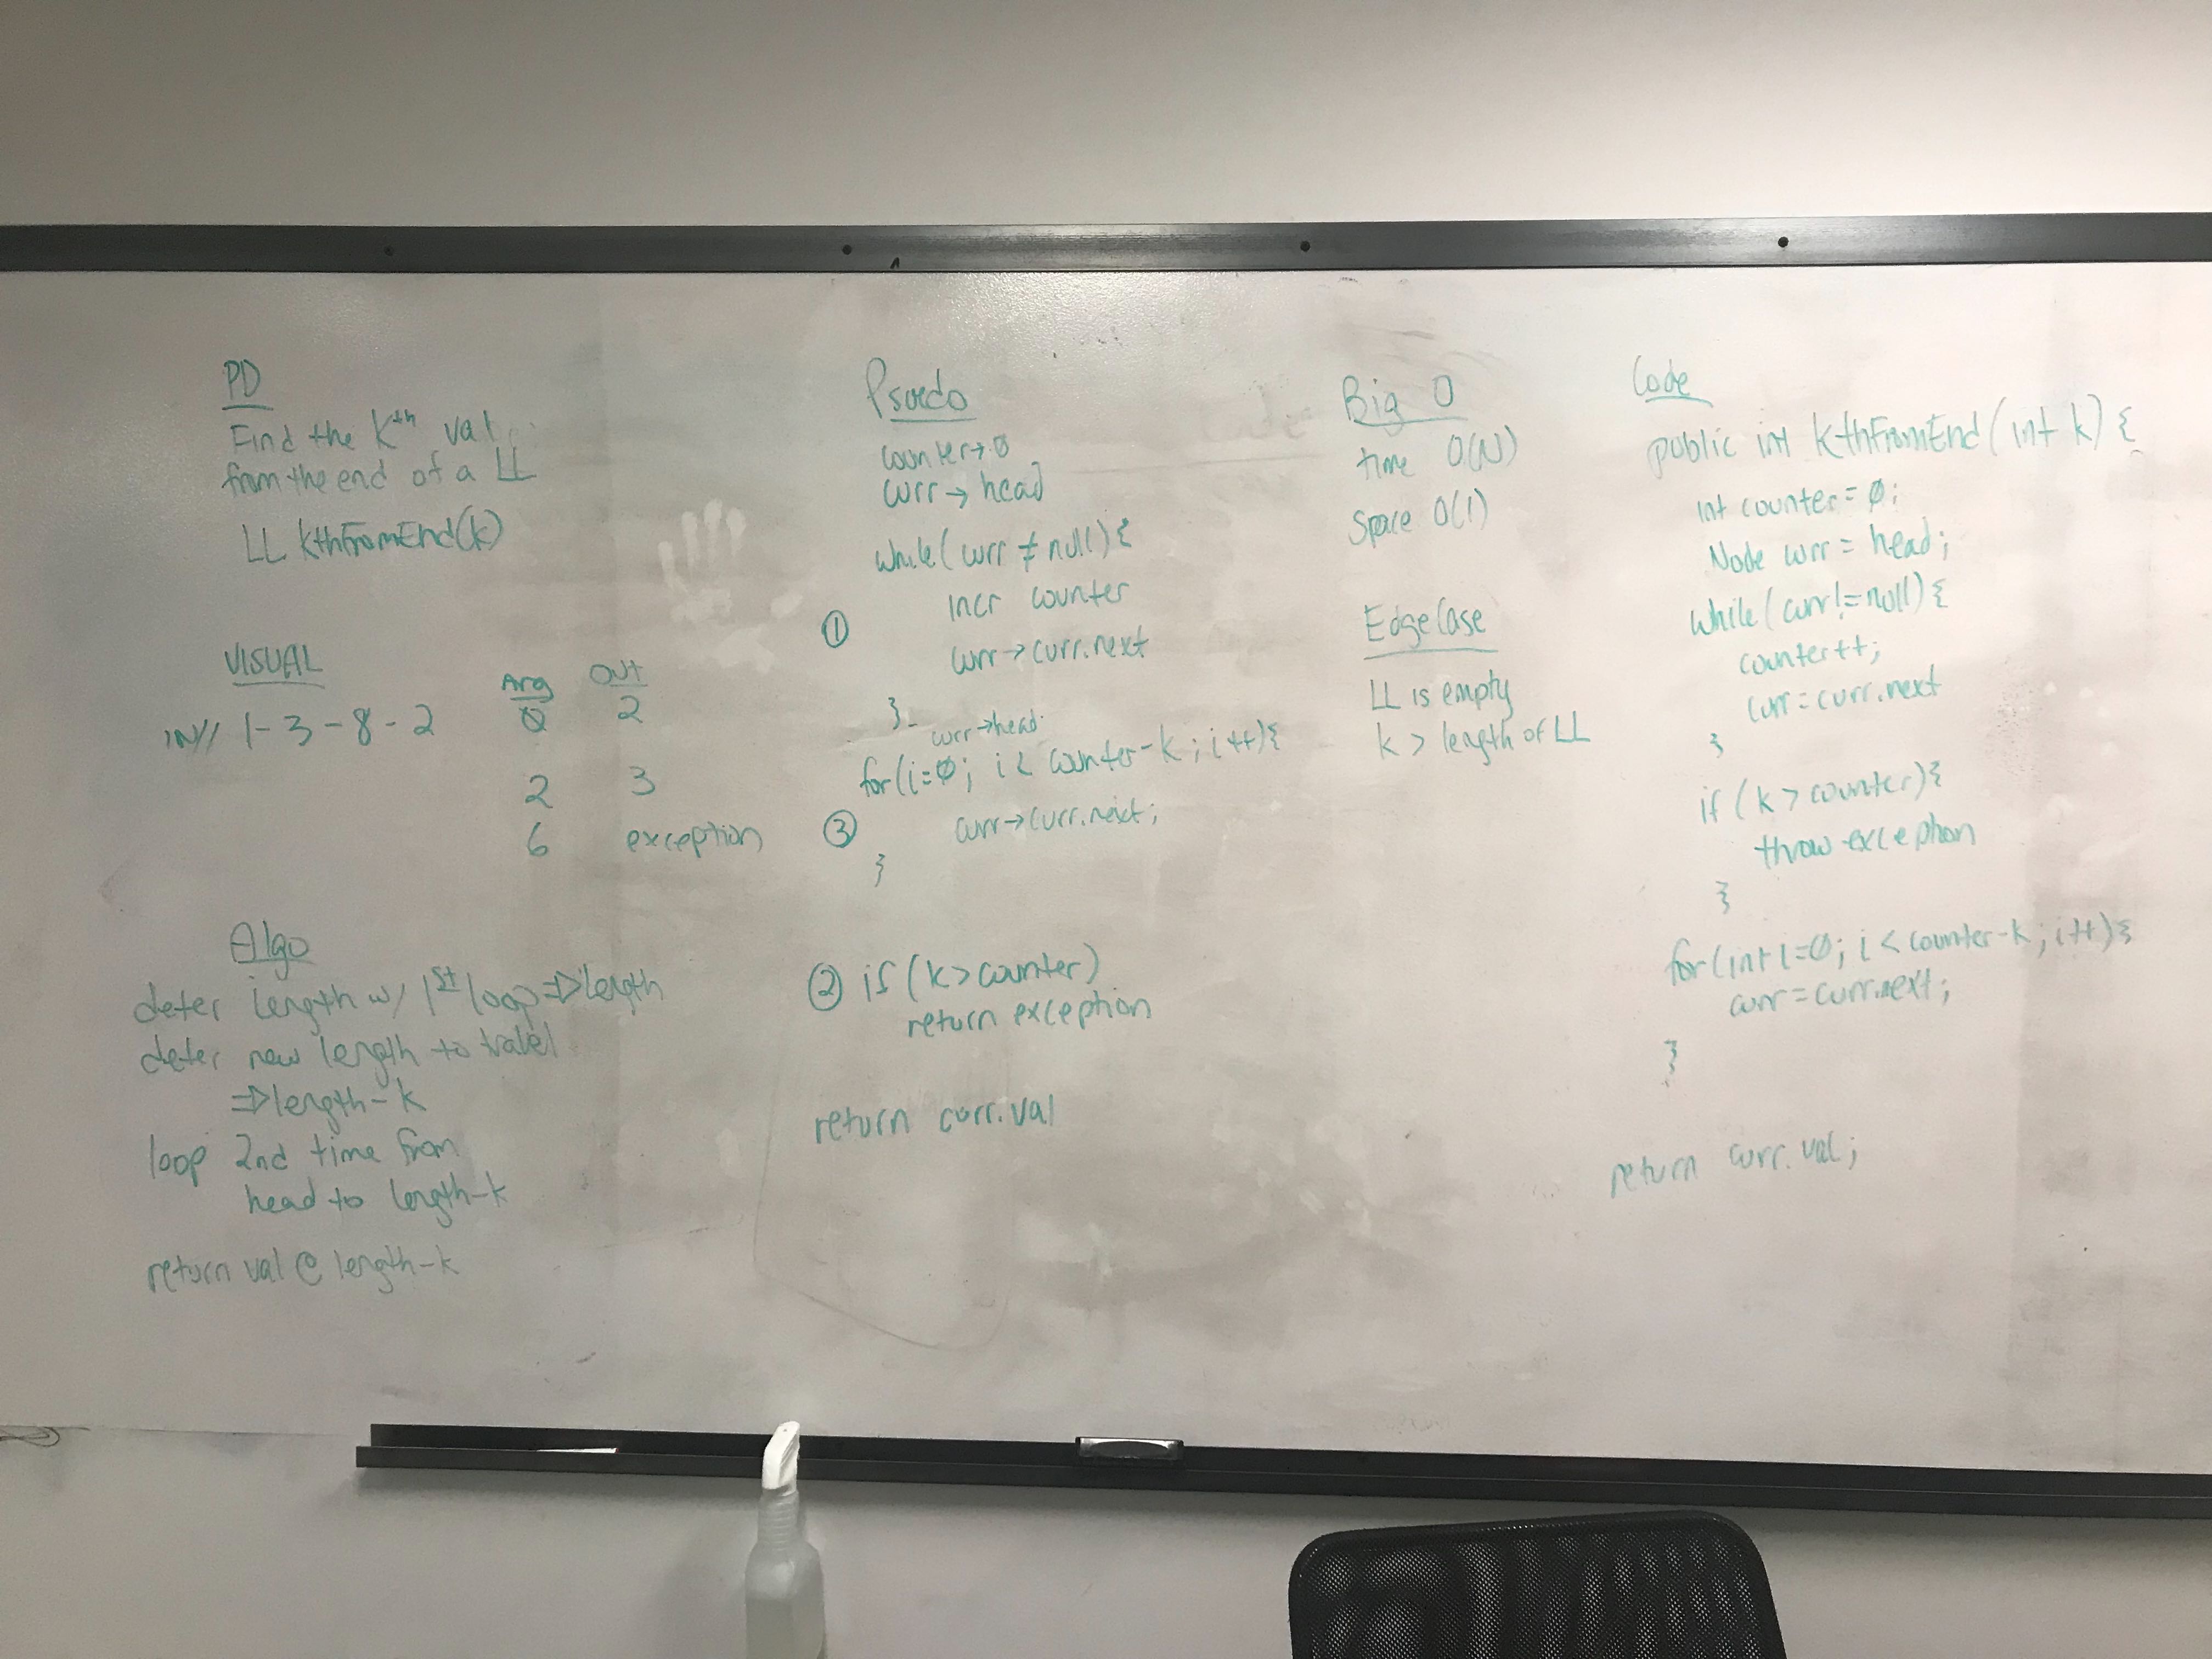 PD
Find the Kth val
from the end of a LL
LL kthFromEnd(k)
VISUAL
IN// 1-3-8-2
Arg Out
0 2
2 3
6 exception
Algo
deter length w/ 1st loop => length
deter new length to travel
=> length-k
loop 2nd time from
head to length-k
return val @ length-k
Psuedo
counter→0
curr→head
while(curr ≠ null){
incr counter
① curr→curr.next
}
curr→head
for(i=0; i < counter-k; i++){
③ curr→curr.next;
}
② if (k>counter)
return exception
return curr.val
Big O
time O(N)
Space O(1)
Edge Case
LL is empty
k > length of LL
Code
public int kthFromEnd(int k){
int counter = 0;
Node curr = head;
while(curr!=null){
counter++;
curr=curr.next
}
if (k>counter){
throw exception
}
for(int i=0; i<counter-k; i++){
curr=curr.next;
}
return curr.val;